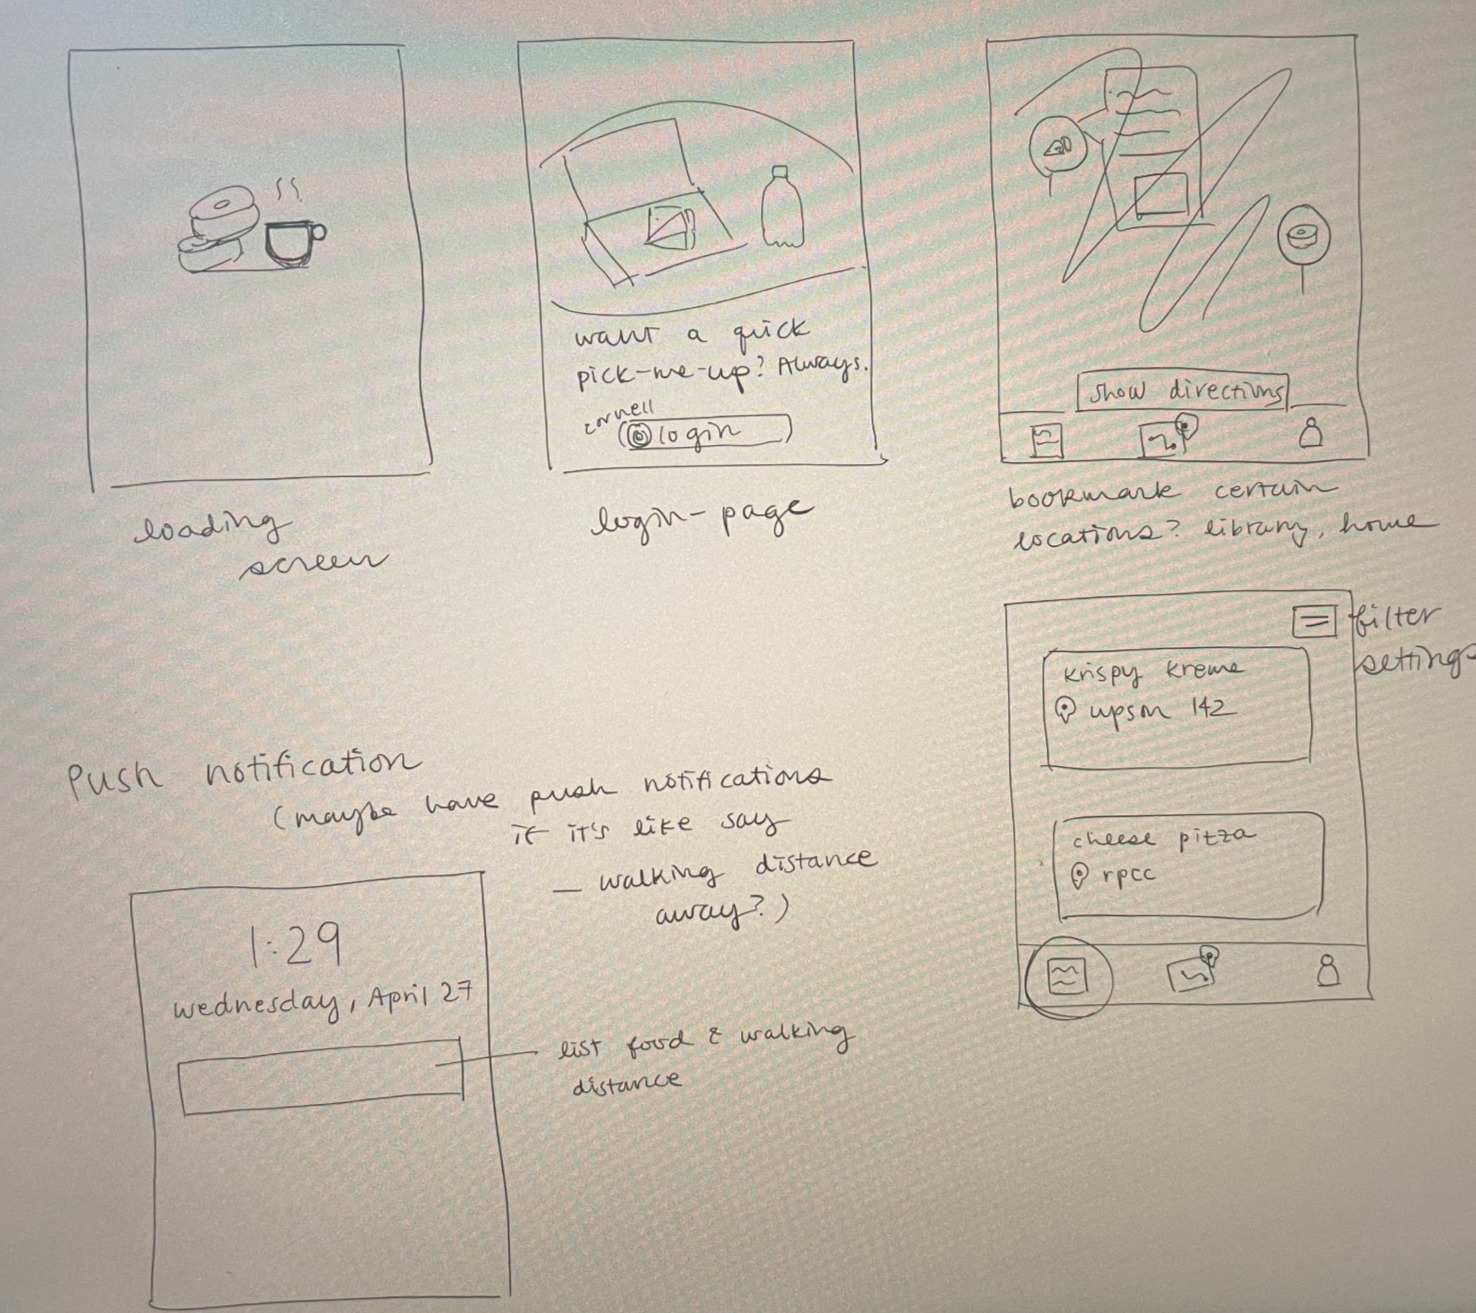 want a quick
pick-me-up? Always.
cornell
login
show directions
loading
screen
login-page
bookmark certain
locations? library, home
filter
settings
krispy kreme
upson 142
cheese pizza
rpcc
Push notification
(maybe have push notifications
if it's like say
— walking distance
away?)
1:29
wednesday, April 27
list food & walking
distance